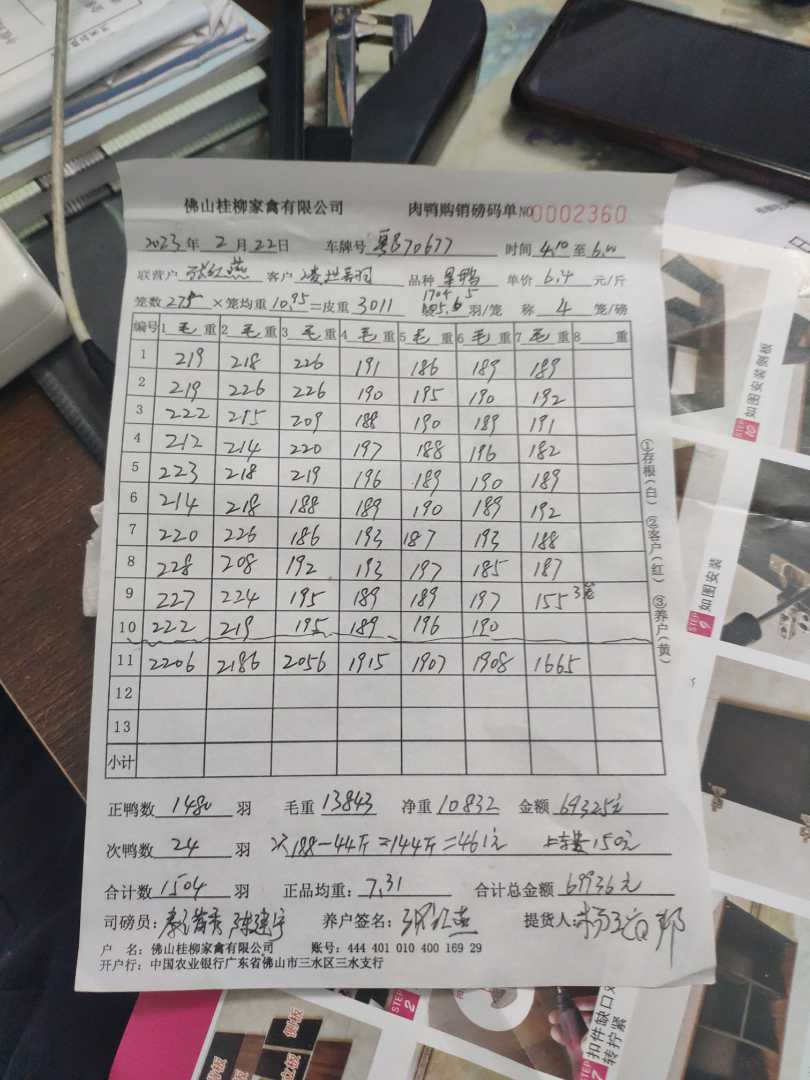 佛山桂柳家禽有限公司 肉鸭购销磅码单 NO 0002360
2023年 2月22日 车牌号 粤B70677 时间 4.10 至 6.00
联营户 张红燕 客户 品种 单价 6.4 元/斤
笼数 275 ×笼均重 10.95 =皮重 3011 羽/笼 称 4 笼/磅
编号 1 毛 重 2 毛 重 3 毛 重 4 毛 重 5 毛 重 6 毛 重 7 毛 重 8 重
1 219 218 226 191 186 189 189
2 219 226 226 190 195 190 192
3 222 215 209 188 190 189 191
4 212 214 220 197 188 196 182
5 223 218 219 196 189 190 189
6 214 218 188 189 190 189 192
7 220 226 186 193 187 193 188
8 228 208 192 193 197 185 187
9 227 224 195 189 189 197 155 3笼
10 222 219 195 189 196 190
11 2206 2186 2056 1915 1907 1908 1665
12
13
小计
①存根(白) ②客户(红) ③养户(黄)
正鸭数 1480 羽 毛重 13843 净重 10832 金额 69325元
次鸭数 24 羽 次188-44斤=144斤=461元 150元
合计数 1504 羽 正品均重: 7.31 合计总金额 69936元
司磅员: 养户签名: 张红燕 提货人:
户 名: 佛山桂柳家禽有限公司 账号: 444 401 010 400 169 29
开户行: 中国农业银行广东省佛山市三水区三水支行
STEP 10 如图安装侧板
STEP 9 如图安装
STEP 2
STEP 7 扣件缺口
转拧紧
侧板